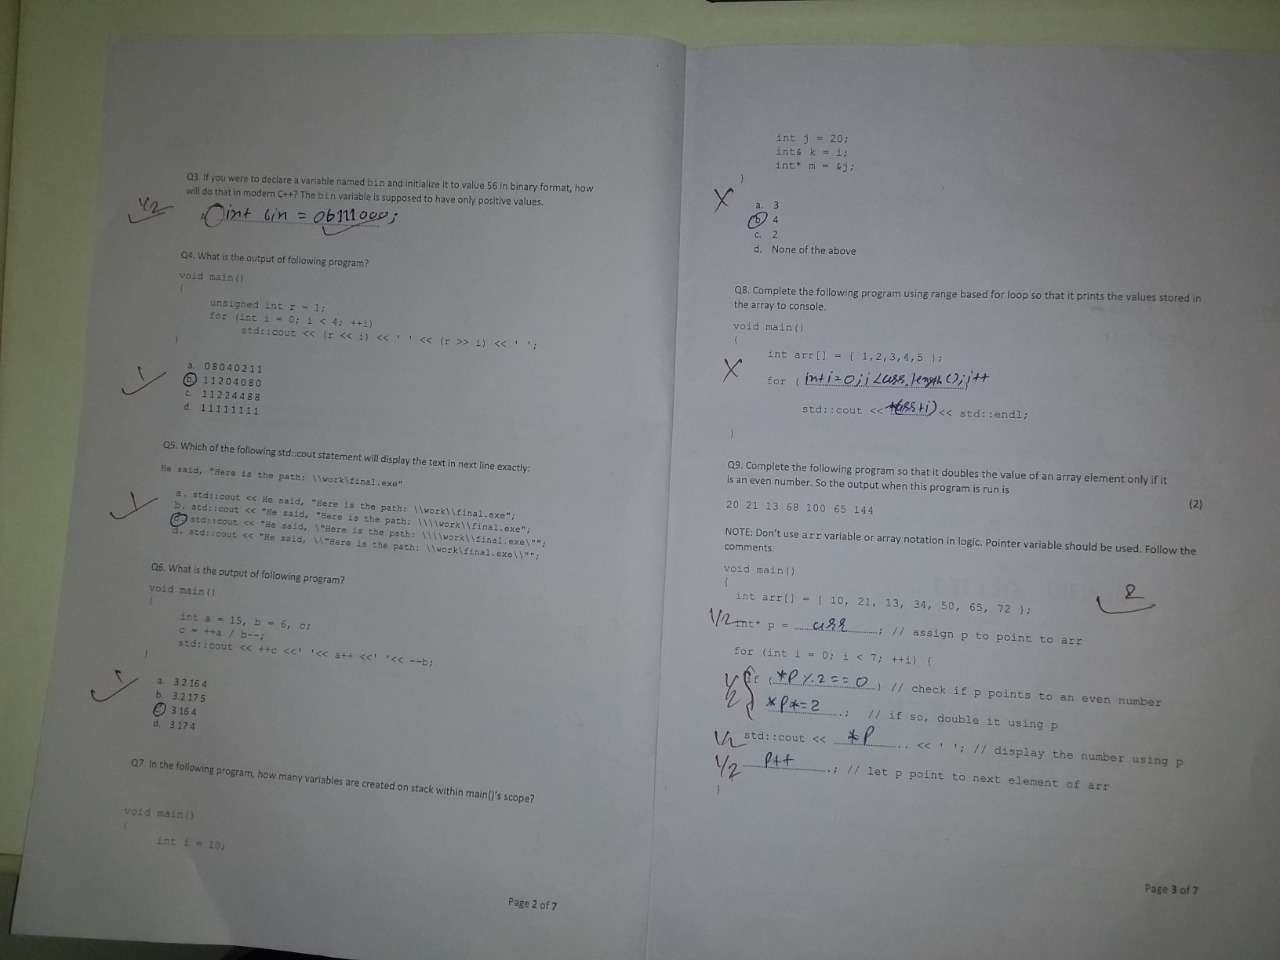 Q3. If you were to declare a variable named bin and initialize it to value 56 in binary format, how
will do that in modern C++? The bin variable is supposed to have only positive values.
1/2
int bin = 0b111000;
Q4. What is the output of following program?
void main()
{
unsigned int r = 1;
for (int i = 0; i < 4; ++i)
std::cout << (r << i) << ' ' << (r >> i) << ' ';
}
1
a. 0 8 0 4 0 2 1 1
b. 1 1 2 0 4 0 8 0
c. 1 1 2 2 4 4 8 8
d. 1 1 1 1 1 1 1 1
Q5. Which of the following std::cout statement will display the text in next line exactly:
He said, "Here is the path: \\work\final.exe"
1
a. std::cout << He said, "Here is the path: \\work\\final.exe";
b. std::cout << "He said, "Here is the path: \\\\work\\final.exe";
c. std::cout << "He said, \"Here is the path: \\\\work\\final.exe\"";
d. std::cout << "He said, \\"Here is the path: \\work\final.exe\\"";
Q6. What is the output of following program?
void main()
{
int a = 15, b = 6, c;
c = ++a / b--;
std::cout << ++c <<' '<< a++ <<' '<< --b;
}
1
a. 3.2 16 4
b. 3.2 17 5
c. 3 16 4
d. 3 17 4
Q7. In the following program, how many variables are created on stack within main()'s scope?
void main()
{
int i = 10;
Page 2 of 7
int j = 20;
int& k = i;
int* m = &j;
}
X
a. 3
b. 4
c. 2
d. None of the above
Q8. Complete the following program using range based for loop so that it prints the values stored in
the array to console.
void main()
{
int arr[] = { 1,2,3,4,5 };
X
for ( int i=0; i<arr.length(); i++
std::cout << *(arr+i) << std::endl;
}
Q9. Complete the following program so that it doubles the value of an array element only if it
is an even number. So the output when this program is run is
(2)
20 21 13 68 100 65 144
NOTE: Don't use arr variable or array notation in logic. Pointer variable should be used. Follow the
comments.
void main()
{
2
int arr[] = { 10, 21, 13, 34, 50, 65, 72 };
1/2 int* p = arr ; // assign p to point to arr
for (int i = 0; i < 7; ++i) {
1/2 if ( *p%2==0 ) // check if p points to an even number
*p*=2 ; // if so, double it using p
1/2 std::cout << *p << ' '; // display the number using p
1/2 p++ ; // let p point to next element of arr
}
Page 3 of 7